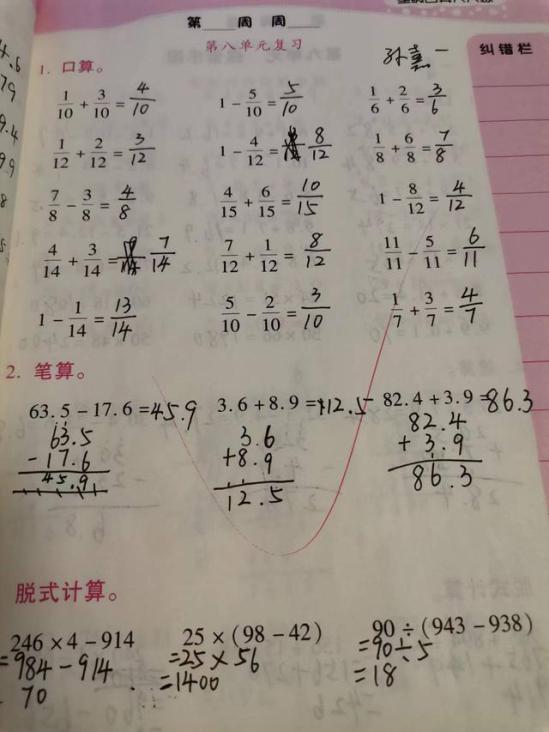 第____周 周____
第八单元复习
纠错栏
1. 口算。
1/10 + 3/10 = 4/10  1 - 5/10 = 5/10  1/6 + 2/6 = 3/6
1/12 + 2/12 = 3/12  1 - 4/12 = 8/12  1/8 + 6/8 = 7/8
7/8 - 3/8 = 4/8  4/15 + 6/15 = 10/15  1 - 8/12 = 4/12
4/14 + 3/14 = 7/14  7/12 + 1/12 = 8/12  11/11 - 5/11 = 6/11
1 - 1/14 = 13/14  5/10 - 2/10 = 3/10  1/7 + 3/7 = 4/7
2. 笔算。
63.5 - 17.6 = 45.9  3.6 + 8.9 = 12.5  82.4 + 3.9 = 86.3
63.5  3.6  82.4
- 17.6  + 8.9  + 3.9
45.9  12.5  86.3
脱式计算。
246 × 4 - 914  25 × (98 - 42)  90 ÷ (943 - 938)
= 984 - 914  = 25 × 56  = 90 ÷ 5
70  = 1400  = 18